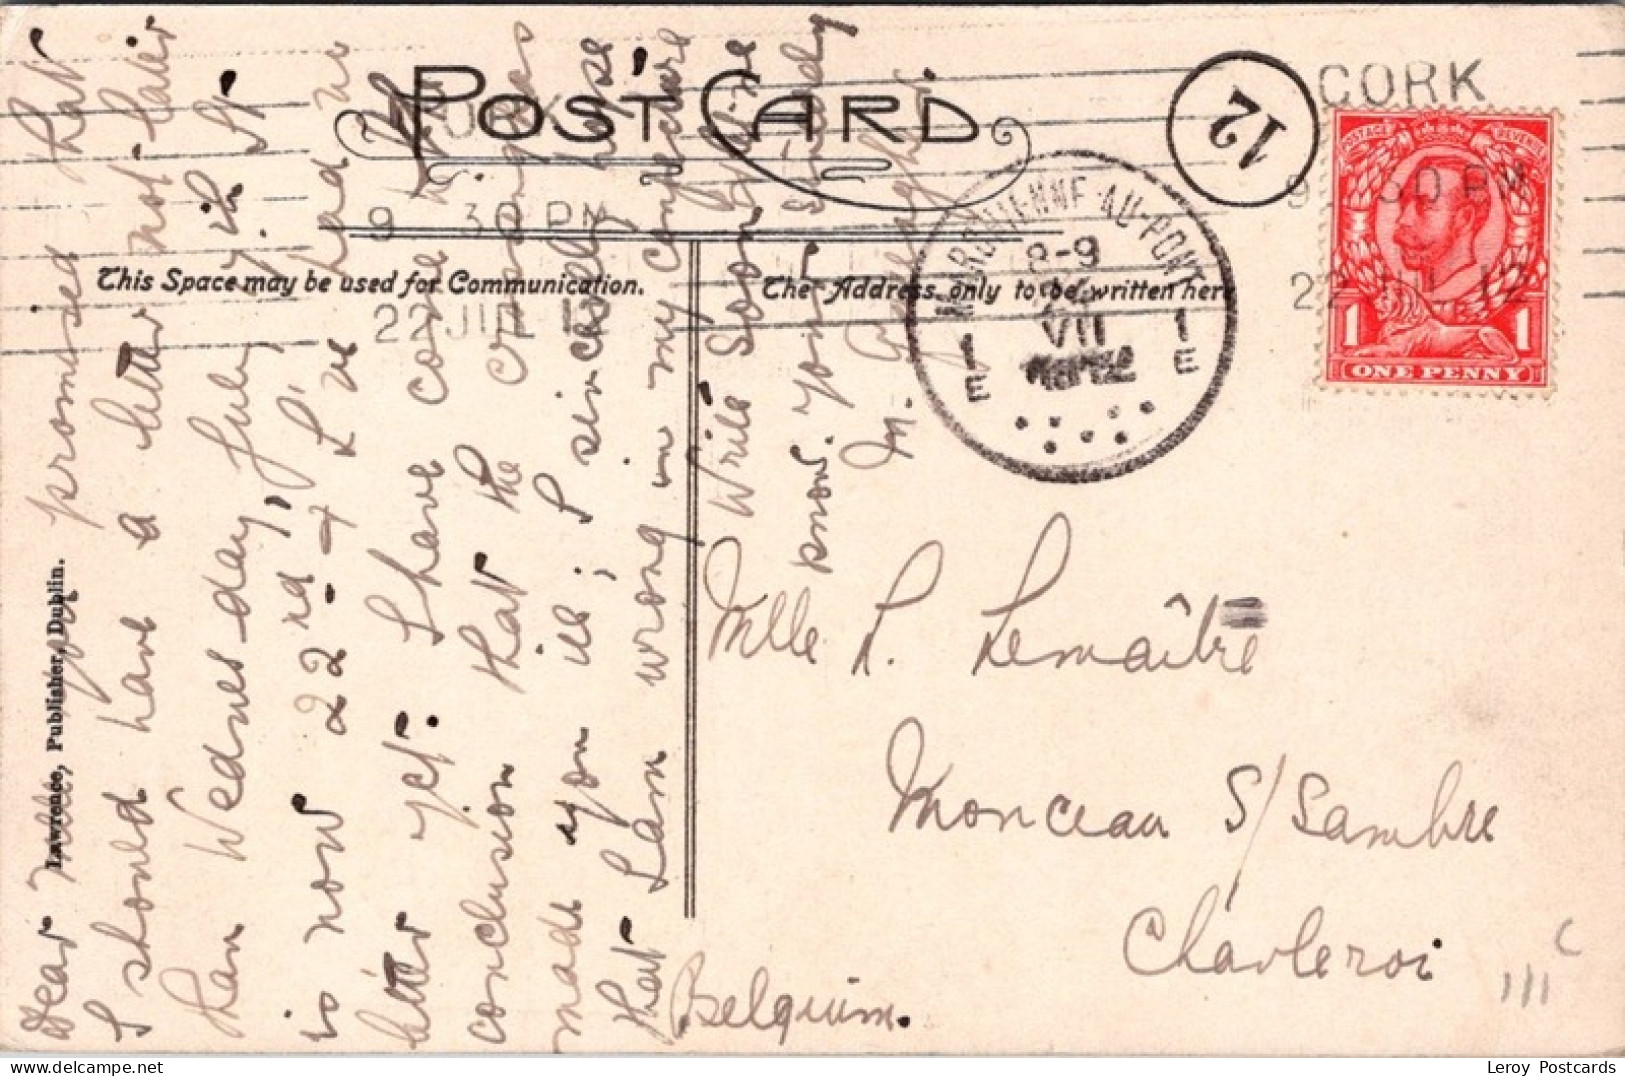 POST CARD
This Space may be used for Communication.
The Address only to be written here
Lawrence, Publisher, Dublin.
CORK
9 30 PM
22 JUL 12
CORK
9 30 PM
22 JUL 12
12
MARCHIENNE-AU-PONT
8-9
VII
1 E
1 E
POSTAGE REVENUE
1 1
ONE PENNY
Dear Mlle, you promised that
I should have a letter not later
than Wednesday, July 7th. It
is now 22nd, & I've had no
letter yet: I have come to the
conclusion that the oranges
made you ill; I sincerely hope
that I am wrong in my conjecture
Write soon & let me
know. Yours sincerely
M.
Mlle P. Lemaître
Monceau S/Sambre
Charleroi
Belgium.
Leroy Postcards